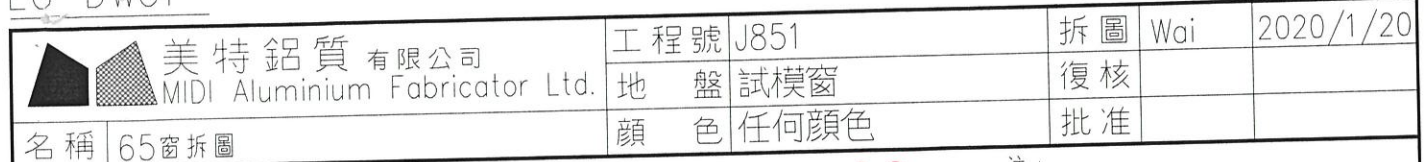 美特鋁質有限公司
MIDI Aluminium Fabricator Ltd.
工程號 J851
拆圖 Wai 2020/1/20
地盤 試模窗
復核
名稱 65窗拆圖
顏色 任何顏色
批准